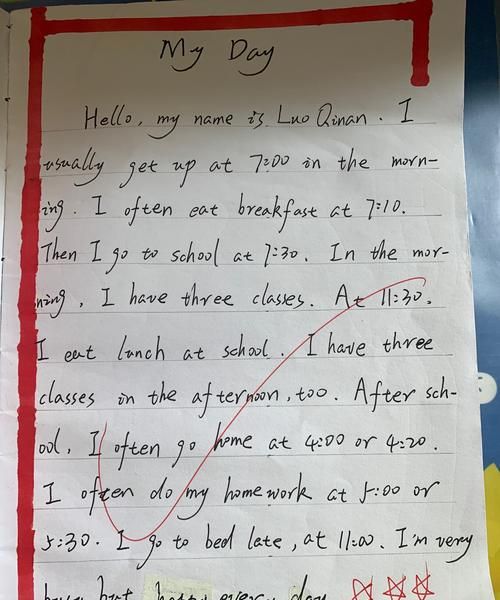 My Day
Hello, my name is Luo Qinan. I
usually get up at 7:00 in the morn-
ing. I often eat breakfast at 7:10.
Then I go to school at 7:30. In the mor-
ning, I have three classes. At 11:30,
I eat lunch at school. I have three
classes in the afternoon, too. After sch-
ool, I often go home at 4:00 or 4:20.
I often do my homework at 5:00 or
5:30. I go to bed late, at 11:00. I'm very
busy but happy every day.